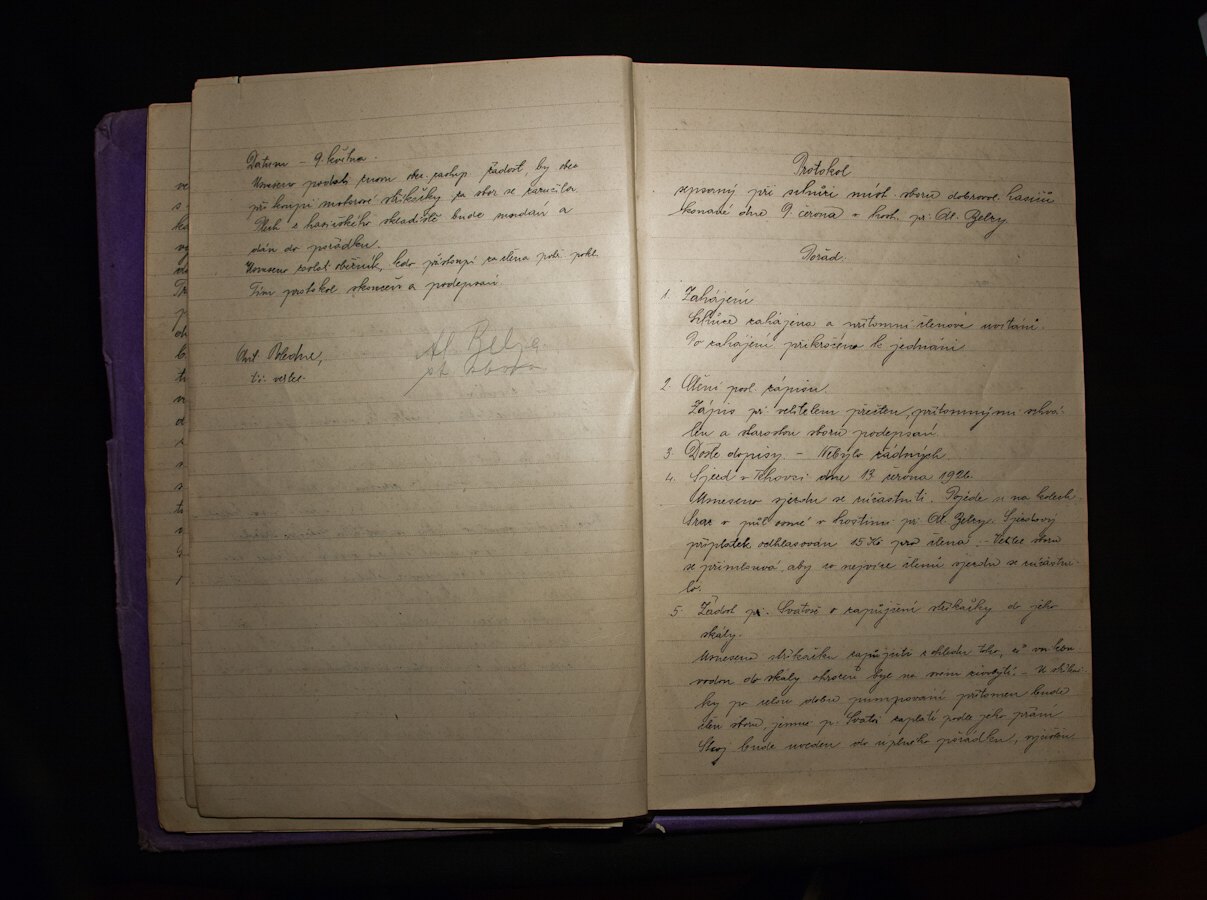 Datum – 9. května.
Usneseno podati znovu obec. zastup. žádost, by obec
při koupi motorové stříkačky za sbor se zaručila.
Plech z hasičského skladiště bude sundán a
dán do pořádku.
Usneseno zaslati oběžník, kdo přistoupí za člena pohř. pokl.
Tím protokol skončen a podepsán.
Al. Belza
st. sboru
Ant. Poledne,
t.č. velitel.
Protokol
sepsaný při schůzi míst. sboru dobrovol. hasičů
konané dne 9. června v host. p. Al. Belzy
Pořad:
1. Zahájení
Schůze zahájena a přítomní členové uvítáni.
Po zahájení přikročeno k jednání
2. Čtení posl. zápisu.
Zápis př. velitelem přečten, přítomnými schvá-
len a starostou sboru podepsán.
3. Došlé dopisy. – Nebylo žádných.
4. Sjezd v dne 13 června 1926.
Usneseno sjezdu se súčastniti. Pojede se na kolech.
Sraz v půl osmé v hostinci p. Al. Belzy. Sjezdový
příplatek odhlasován 15 Kč pro člena. – Velitel sboru
se přimlouvá, aby co nejvíce členů sjezdu se súčastni-
lo.
5. Žádost p. Svatoš o zapůjčení stříkačky do jeho
skály.
Usneseno stříkačku zapůjčiti z ohledu toho, že
vodou do skály ohrožen byt na svém živobytí. – U stříkač-
ky po celou dobu pumpování přítomen bude
člen sboru, jemuž p. Svatoš zaplatí podle jeho přání
Stroj bude uveden do úplného pořádku, vyčištěn